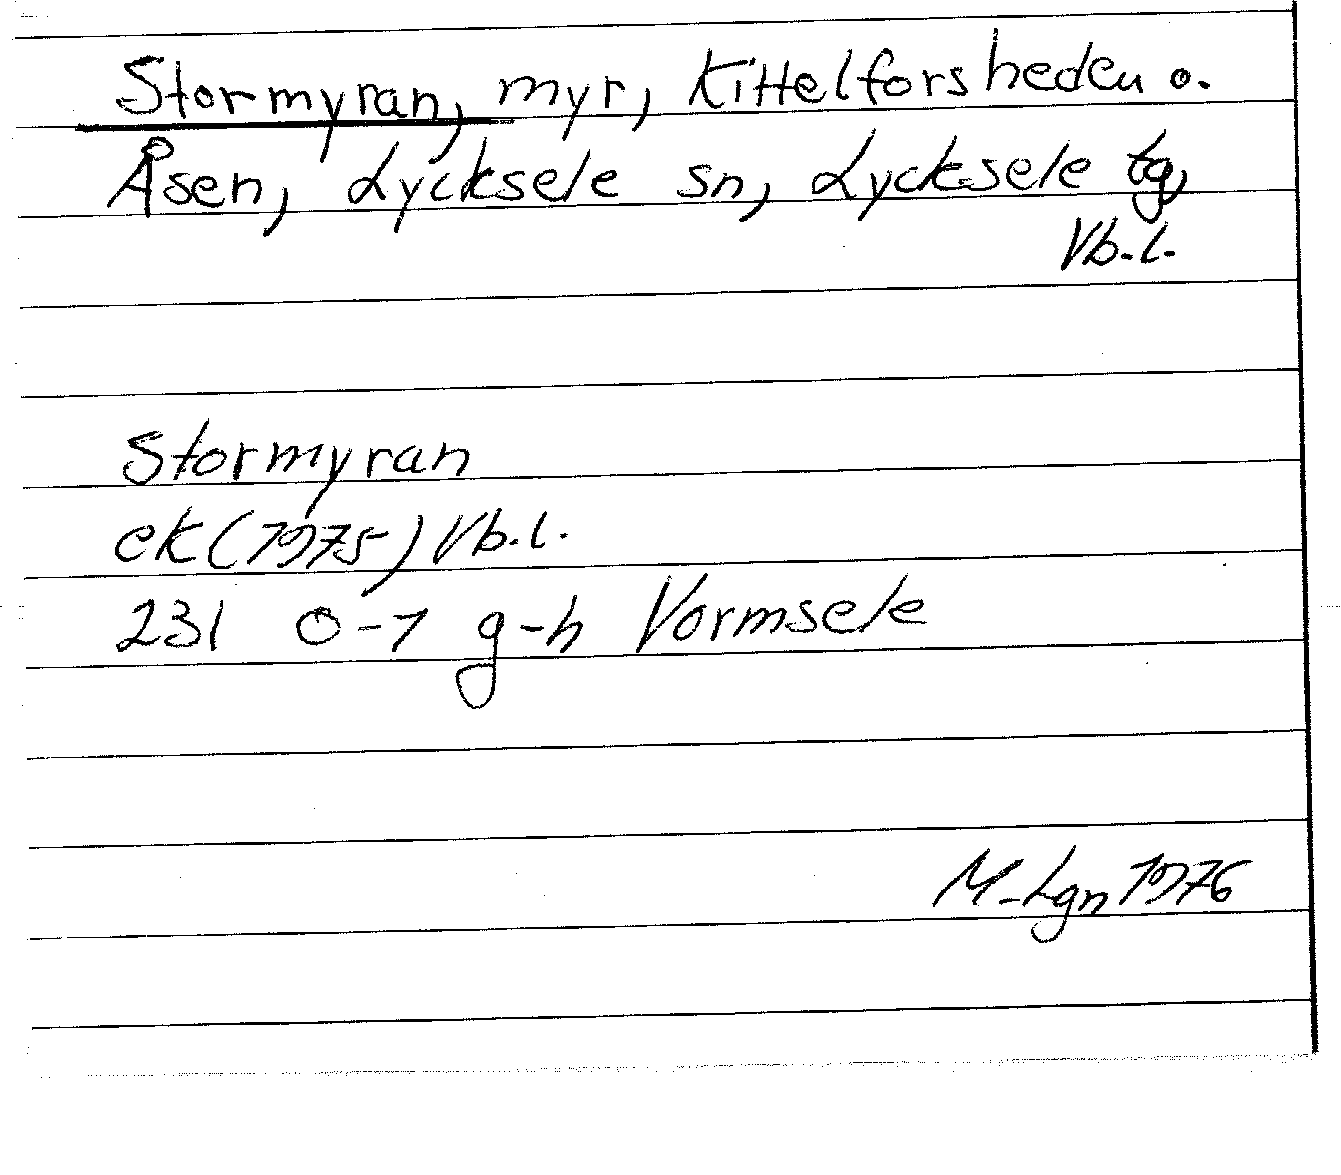 Stormyran, myr, Kittelforsheden o.
Åsen, Lycksele sn, Lycksele tg,
Vb.l.
Stormyran
ek (1975) Vb.l.
231 0-1 g-h Vormsele
M-Lgn 1976